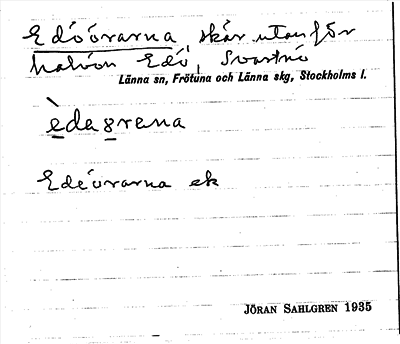 Edöörarna, skär utanför
halvön Edö, Svartnö
Länna sn, Frötuna och Länna skg, Stockholms l.
èdaɡrana
Edöörarna ek
JÖRAN SAHLGREN 1935